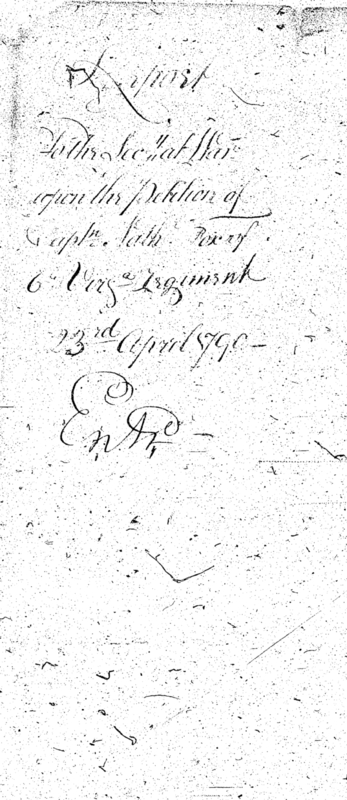 Report
To the Secy at War
upon the Petition of
Captn. Nathl. Fox of
6th Virga Regiment
23rd April 1790 —
Entrd —